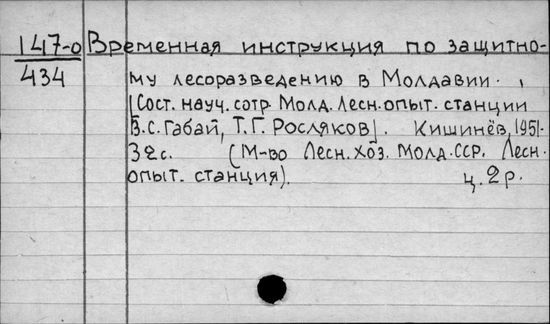 147-о Временная инструкция по защитно-
434 му лесоразведению в Молдавии.
[Сост. науч. сотр Молд. Лесн. опыт. станции
В.С. Габай, Т.Г. Росляков]. Кишинёв, 1951.
32с. (М-во Лесн. хоз. Молд. ССР. Лесн.
опыт. станция). ц. 2р.